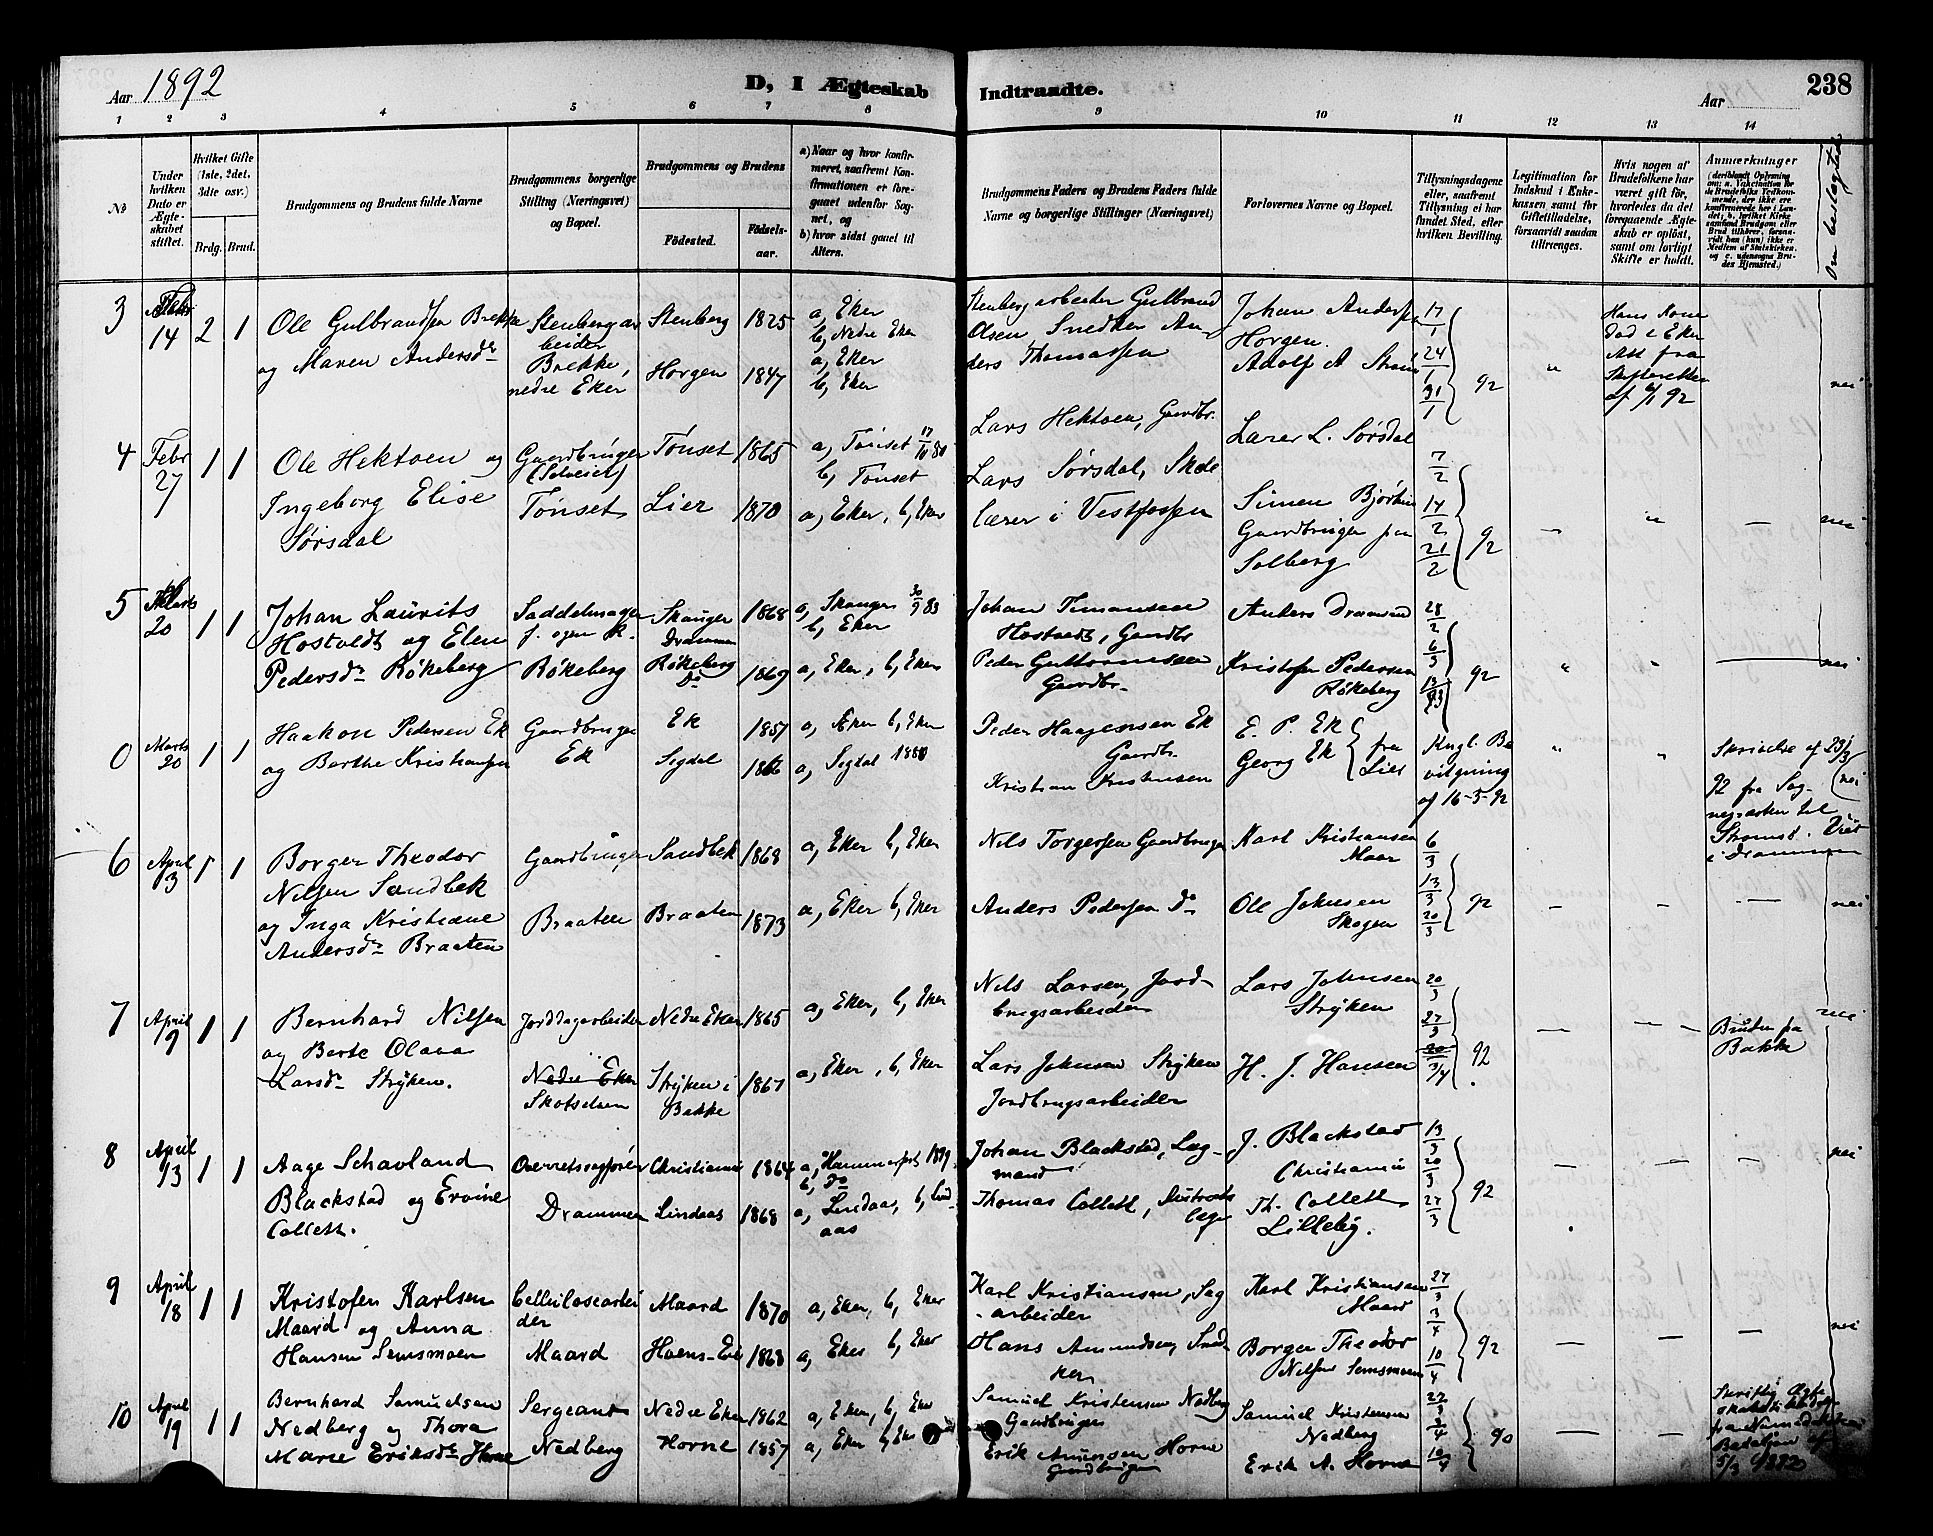 Aar 1892
D, I Ægteskab Indtraadte.
Aar
238
1 2 3 4 5 6 7 8 9 10 11 12 13 14
No
Under hvilken Dato er Ægteskabet stiftet.
Hvilket Gifte (1ste, 2det, 3die osv.)
Brdg. Brud.
Brudgommens og Brudens fulde Navne
Brudgommens borgerlige Stilling (Næringsvei) og Bopæl.
Brudgommens og Brudens
Födested.
Födselsaar.
a) Naar og hvor konfirmeret, saafremt Konfirmationen er foregaaet udenfor Sognet, og
b) hvor sidst gaaet til Alters.
Brudgommens Faders og Brudens Faders fulde Navne og borgerlige Stillinger (Næringsvei)
Forlovernes Navne og Bopæl.
Tillysningsdagene eller, saafremt Tillysning ei har fundet Sted, efter hvilken Bevilling.
Legitimation for Indskud i Enkekassen samt for Giftetilladelse, forsaavidt saadan tiltrænges.
Hvis nogen af Brudefolkene har været gift før, hvorledes da det foregaaende Ægteskab er oplöst, samt om lovligt Skifte er holdt.
Anmærkninger
Om beslægtede
3 14 2 1
Ole Gulbrandsen Brekke
og Maren Andersdr
Stenbergar
beider
Brekke,
nedre Eker
Stenberg 1825
Horgen 1847
a, Eker
b, Nedre Eker
a, Eker
b, Eker
Stenberg arbeider Gulbrand
Olsen Snedker An
ders Thomassen
Johan Andersen
Horgen.
Adolf A
17/1 24/1 31/1 92
"
Hans Kone
död i Eker
Att fra
Skifteretten
af 92
nei
4 Febr 27 1 1
Ole Hektoen og
Ingeborg Elise
Sørsdal
Gaardbruger
(Selveier)
Tönset
Tönset 1865
Lier 1870
a, Tönset 17/10 80
b, Tönset
a, Eker, b, Eker
Lars Hektoen, Gaardbr.
Lars Sørsdal, Skole
lærer i Vestfossen
Lærer L. Sørsdal
Simen
Gaardbruger paa
Solberg
7/2 14/2 21/2 92
— " — nei
5 Marts 20 1 1
Johan Laurits
Hostvedt og Elen
Pedersdr Rökeberg
Saddelmager
f. egen R.
Rökeberg
Skauger
Drammen
Rökeberg
Do
1868
1869
a, Skauger 30/9 83
b, Eker
a, Eker, b, Eker
Johan
Hostvedt, Gaardbr
Peder Guttormsen
Gaardbr.
Anders
Kristofer Pedersen
Rökeberg
28/2 6/3 13/3 92
" " — nei
0 Marts 20 1 1
Haakon Pedersen Ek
og Berthe Kristiansen
Gaardbruger
Ek
Ek 1857
Sigdal 1866
a, Eker b, Eker
a, Sigdal 1880
Peder Haagensen Ek
Gaardbr.
Kristian Kristensen
E. P. Ek
Georg Ek
fra
Lier
Kngl. Be
vilgning
af 16-3-92
" "
Skrivelse af 23/3
92 fra Sog-
nepræsten til
Strömsö
i Drammen
nei
6 April 3 1 1
Borger Theodor
Nilsen Sandbek
og Inga Kristiane
Andersdr Braaten
Gaardbruger
Braaten
Sandbek 1868
Braaten 1873
a, Eker b, Eker
a, Eker b, Eker
Nils Torgersen Gaardbruger
Anders Pedersen Do
Karl Kristiansen
Maar
Ole Johnsen
Skogen
6/3 13/3 20/3 92
— — — nei
7 April 9 1 1
Bernhard Nilsen
og Berte Olava
Larsdr Stryken.
Jorddagarbeider
Nedre Eker
Skotselven
Nedre Eker 1865
Stryken i
Bakke
1867
a, Eker, b, Eker
a, Eker, b, Eker
Nils Larsen, Jord-
brugsarbeider
Lars Johnsen Stryken
Jordbrugsarbeider
Lars Johnsen
Stryken
H. J. Hansen
20/3 27/3 3/4 92
— —
Bruden fra
Bakke
nei
8 April 13 1 1
Aage Schavland
Blackstad og Ervine
Collett.
Overretssagförer
Drammen
Christiania 1864
Lindaas 1868
a, Hammerfest 1879
b, Do
a, Lindaas, b, Lind-
aas
Johan Blackstad, Lag-
mand
Thomas Collett, Distrikts
læge
J. Blackstad
Christiania
Th. Collett
Lilleby.
13/3 20/3 27/3 92
— — — nei
9 April 18 1 1
Kristofer Karlsen
Maard og Anna
Hansen Semsmoen
Cellulosearbei
der
Maard
Maard 1870
Hoens-Eie 1868
a, Eker, b, Eker
a, Eker b, Eker
Karl Kristiansen, Sag
-arbeider
Hans Amundsen, Sned
ker
Karl Kristiansen
Maard
Borger Theodor
Nilsen Semsmoen
27/3 3/4 10/4 92
— — — nei
10 April 19 1 1
Bernhard Samuelsen
Nedberg og Thora
Marie Eriksdr Horne
Sergeant
Nedberg
Nedre Eker 1862
Horne 1857
a, Eker, b, Eker
a, Eker b, Eker
Samuel Kristensen Nedberg
Gaardbruger
Erik Amundsen Horne
Gaardbruger
Samuel Kristensen
Nedberg
Erik A. Horne
27/3 3/4 10/4 90
— —
Skriftlig Ægte
skabstilladelse
fra Numedalske
Bataljon af
5/3 1892